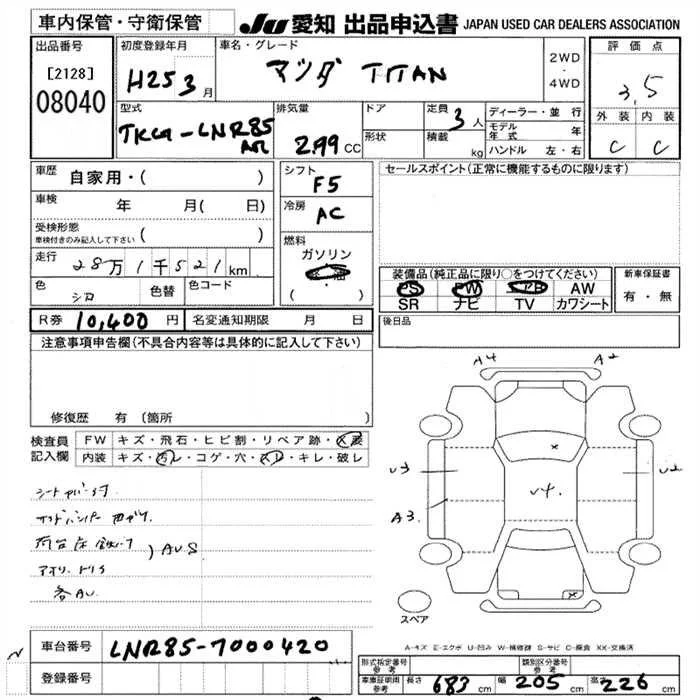 車内保管・守衛保管
JU 愛知 出品申込書 JAPAN USED CAR DEALERS ASSOCIATION
出品番号
[2128]
08040
初度登録年月
H25 3月
車名・グレード
マツダ TITAN
2WD
・
4WD
評価点
3.5
外装 内装
C C
型式
TKG-LNR85
AR
排気量
2.99 CC
ドア
形状
定員 3人
積載 kg
ディーラー・並行
モデル年式 年
ハンドル 左・右
車歴
自家用・( )
車検 年 月( 日)
受検形態
車検付きのみ記入して下さい ( )
走行 28万1千521km
色 シロ 色替 色コード
シフト
F5
冷房
AC
燃料
ガソリン
軽油
( )
セールスポイント(正常に機能するものに限ります)
装備品(純正品に限り○をつけてください)
PS PW エアB AW
SR ナビ TV カワシート
新車保証書
有・無
R券 10,400円 名変通知期限 月 日
後日品
注意事項申告欄(不具合内容等は具体的に記入して下さい)
修復歴 有(箇所 )
検査員記入欄
FW キズ・飛石・ヒビ割・リペア跡・
内装 キズ・汚レ・コゲ・穴・スレ・キレ・破レ
荷台床
) AUS
アオリ
各AU
A4 A2
U3 U2
A3 U4
x
x
スペア
A-キズ E-エクボ U-凹み W-補修跡 S-サビ C-腐食 XX-交換済
車台番号 LNR85-7000420
登録番号
形式指定番号参考 類別区分番号参考
車庫証明用参考 長さ 683cm 幅 205cm 高さ 226cm